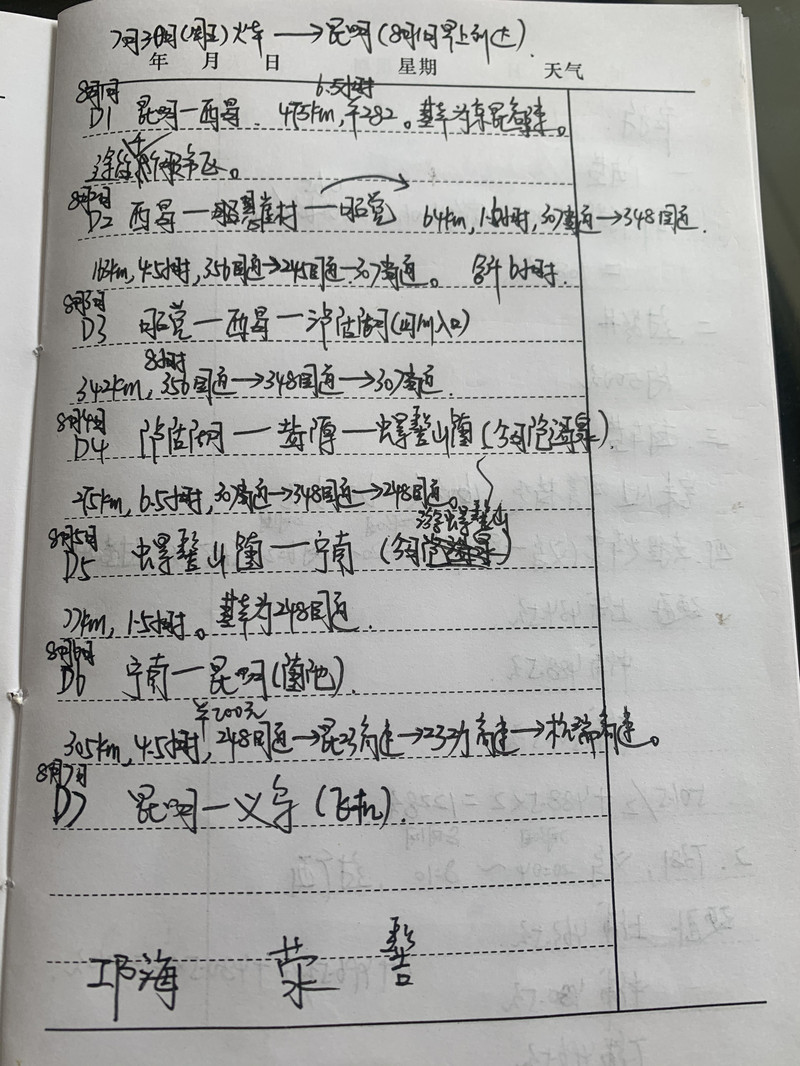 7月30日(周五)火车→昆明(8月1日早上到达)
年 月 日 星期 天气
8月1日 6.5小时
D1 昆明—西昌. 475km, 约282。基本为京昆高速。
途经 服务区。
8月2日
D2 西昌—悬崖村—昭觉 64km, 1.5小时, 307省道→348国道.
163km, 4.5小时, 356国道→245国道→307省道。 合计6小时.
8月3日
D3 昭觉—西昌—泸沽湖(四川入口)
8小时
342km, 356国道→348国道→307省道.
8月4日
D4 泸沽湖—盐源—螺髻山镇(
275km, 6.5小时, 307省道→348国道→248国道。
8月5日 游螺髻山
D5 螺髻山镇—宁南(
77km, 1.5小时。基本为248国道.
8月6日
D6 宁南—昆明(滇池).
约200元
305km, 4.5小时, 248国道→昆 高速→ 高速→杭瑞高速。
8月7日
D7 昆明—义乌(飞机).
邛海 荥 髻